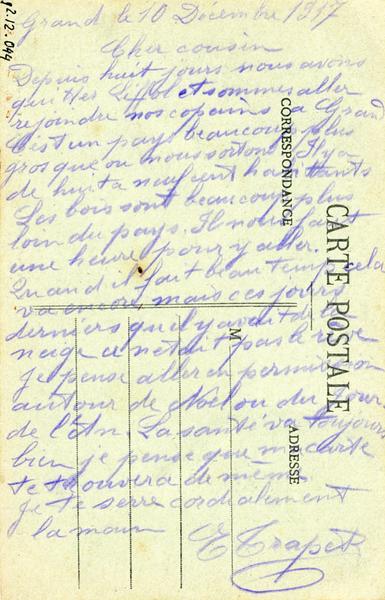 92.12.044
Grand le 10 Décembre 1917
Cher cousin
Depuis huit jours nous avons
quittes et sommes aller
rejoindre nos copains a Grand
C'est un pays beaucoup plus
gros que ou nous sortons. Il y a
de huit a neuf cent habitants
Les bois sont beaucoup plus
loin du pays. Il nous faut
une heure pour y aller.
Quand il fait beau temps cela
va encore mais ces jours
derniers qu'il y avait de la
neige ce n'était pas le rêve
Je pense aller en permission
autour de Noël ou du jour
de l'An. La santé va toujours
bien je pense que ma carte
te trouvera de même
Je te serre cordialement
la main
E Trapet
CARTE POSTALE
CORRESPONDANCE
M
ADRESSE